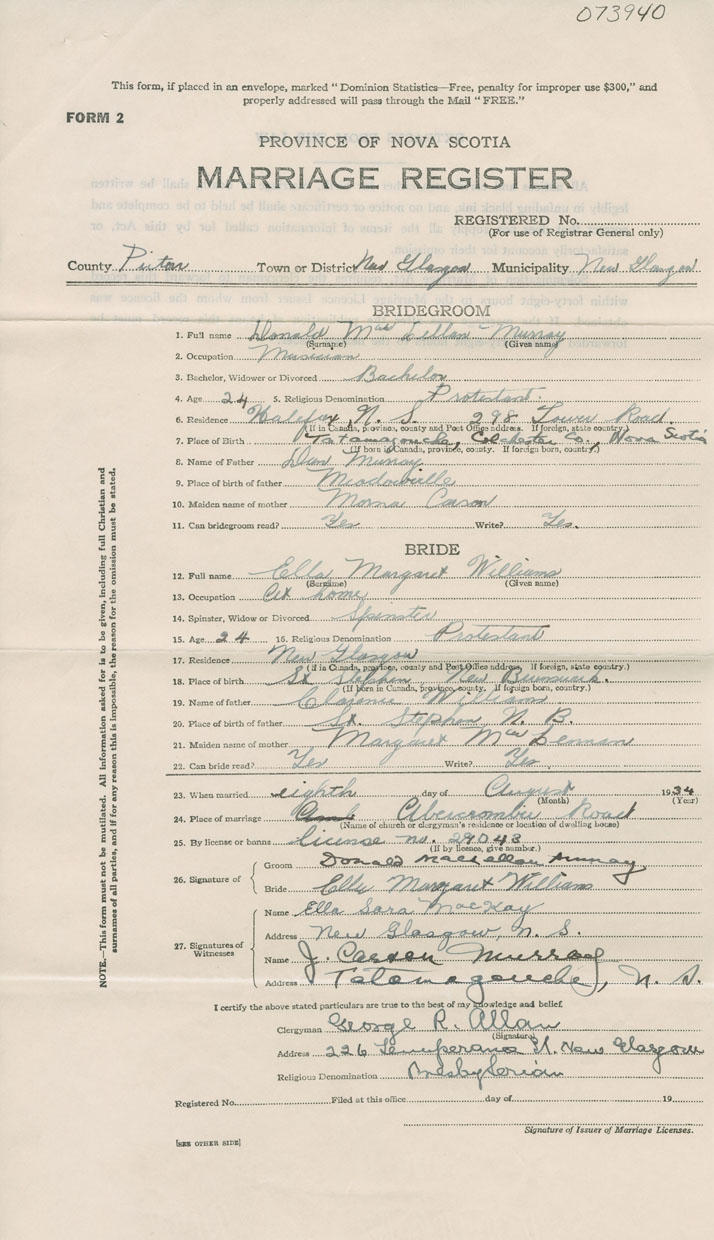 073940
This form, if placed in an envelope, marked "Dominion Statistics—Free, penalty for improper use $300," and
properly addressed will pass through the Mail "FREE."
FORM 2
PROVINCE OF NOVA SCOTIA
MARRIAGE REGISTER
REGISTERED No.
(For use of Registrar General only)
County Pictou Town or District New Glasgow Municipality New Glasgow
BRIDEGROOM
1. Full name Donald MacLellan Murray
(Surname) (Given name)
2. Occupation Musician
3. Bachelor, Widower or Divorced Bachelor
4. Age 24 5. Religious Denomination Protestant.
6. Residence Halifax, N. S. 298 Tower Road.
(If in Canada, province, county and Post Office address. If foreign, state country.)
7. Place of Birth Tatamagouche, Colchester Co., Nova Scotia
(If born in Canada, province, county. If foreign born, country.)
8. Name of Father Dan Murray
9. Place of birth of father Meadowville
10. Maiden name of mother Morna Carson
11. Can bridegroom read? Yes Write? Yes.
BRIDE
12. Full name Ella Margaret Williams
(Surname) (Given name)
13. Occupation At home
14. Spinster, Widow or Divorced Spinster
15. Age 24 16. Religious Denomination Protestant
17. Residence New Glasgow
(If in Canada, province, county and Post Office address. If foreign, state country.)
18. Place of birth St Stephen, New Brunswick.
(If born in Canada, province, county. If foreign born, country.)
19. Name of father Clarence Williams
20. Place of birth of father St. Stephen, N. B.
21. Maiden name of mother Margaret
22. Can bride read? Yes Write? Yes.
23. When married eighth day of August 1934
(Month) (Year)
24. Place of marriage Abercrombie Road
(Name of church or clergyman's residence or location of dwelling house)
25. By license or banns license no. 29043
(If by licence, give number.)
26. Signature of
Groom Donald MacLellan Murray
Bride Ella Margaret Williams
27. Signatures of Witnesses
Name Ella Sara MacKay
Address New Glasgow, N. S.
Name J. Carson Murray
Address Tatamagouche, N. S.
I certify the above stated particulars are true to the best of my knowledge and belief.
Clergyman George R. Allan
(Signature)
Address 226 Temperance St. New Glasgow
Religious Denomination Presbyterian
Registered No. Filed at this office day of 19
Signature of Issuer of Marriage Licenses.
[SEE OTHER SIDE]
NOTE.—This form must not be mutilated. All information asked for is to be given, including full Christian and
surnames of all parties, and if for any reason this is impossible, the reason for the omission must be stated.